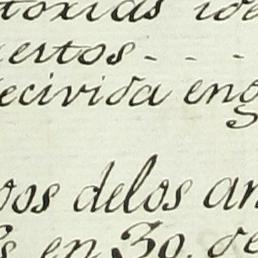 toxidas ide
ertos - - -
ecivida eng
oos delos an
s en 30. de